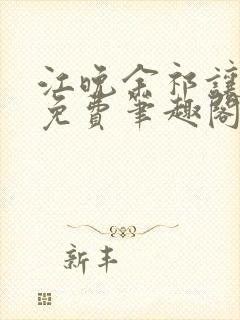 江晚余祁让
免费笔趣阁
新丰